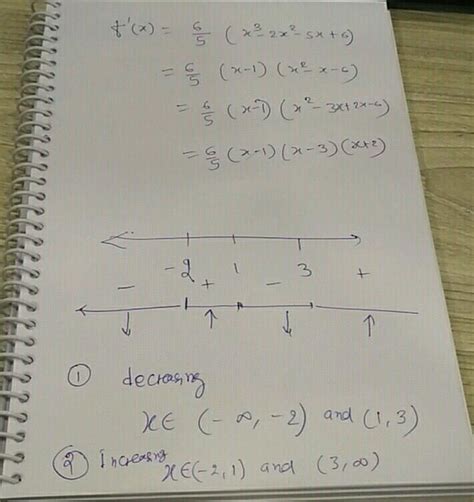 f'(x) = 6/5 (x³-2x²-5x+6)
= 6/5 (x-1) (x²-x-6)
= 6/5 (x-1) (x²-3x+2x-6)
= 6/5 (x-1) (x-3) (x+2)
-2 1 3
- + - +
↓ ↑ ↓ ↑
① decreasing
x∈ (-∞, -2) and (1, 3)
② Increasing
x∈(-2,1) and (3,∞)